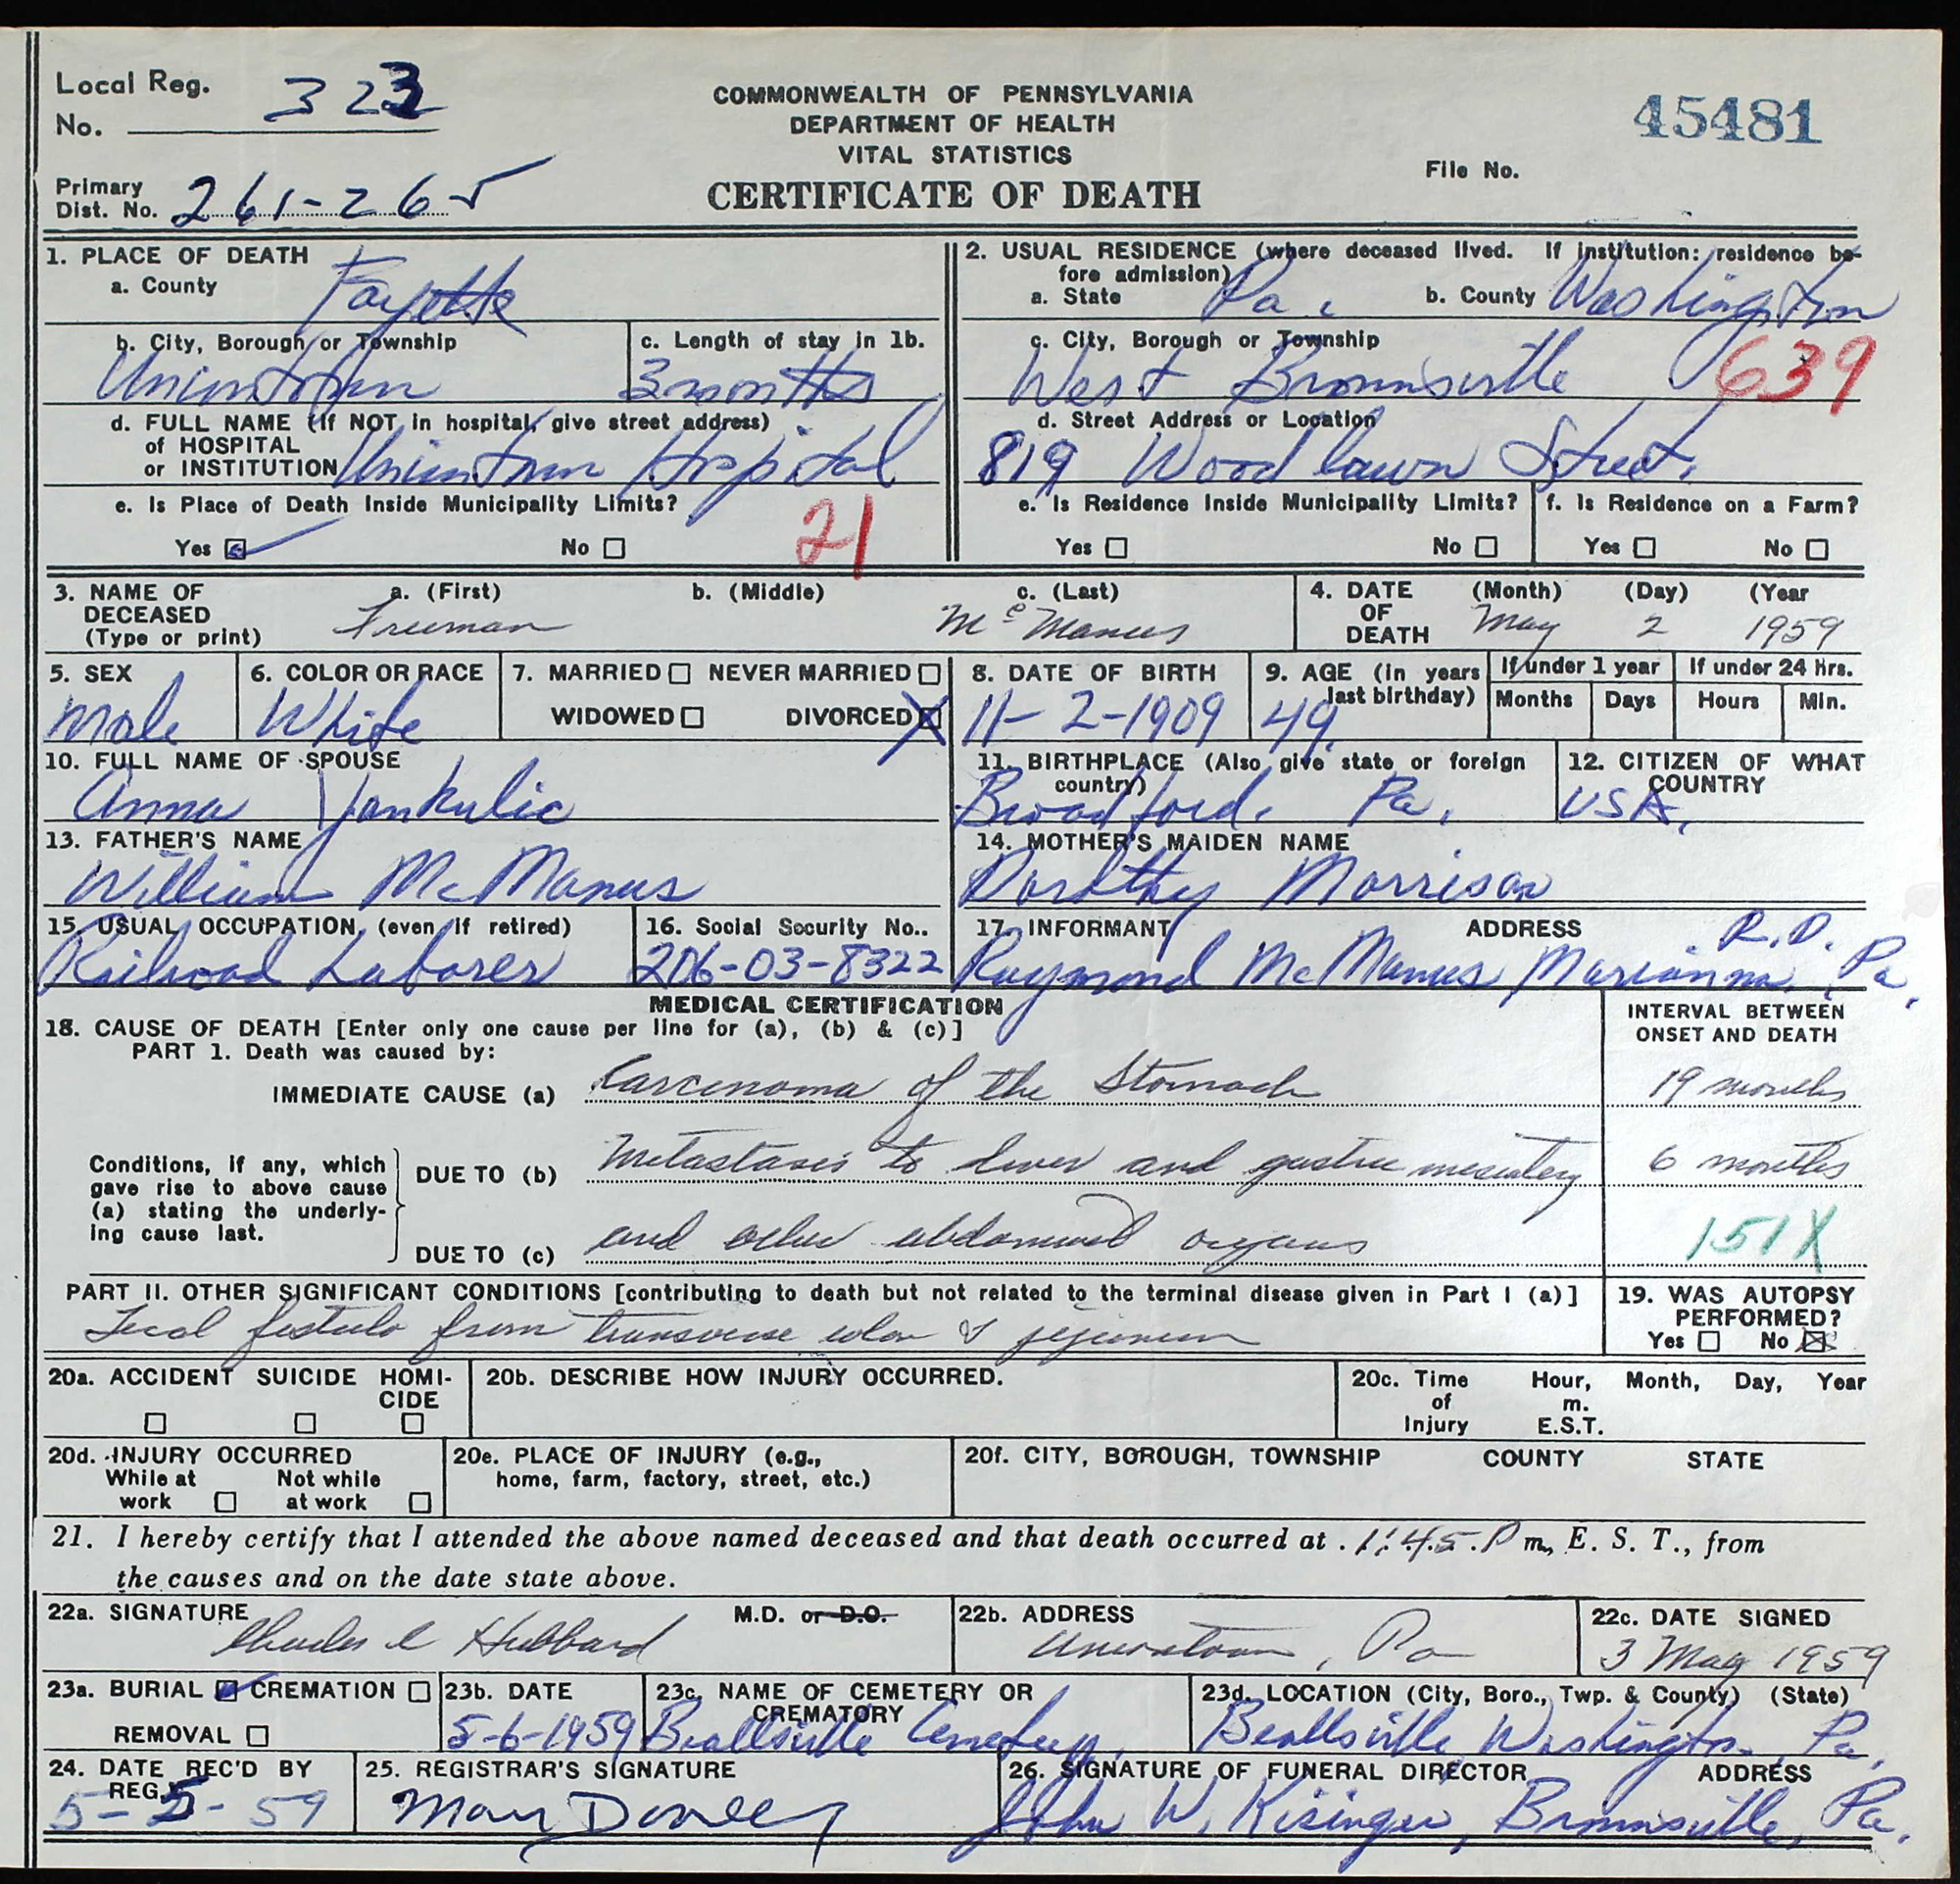 Local Reg. No. 323
COMMONWEALTH OF PENNSYLVANIA
DEPARTMENT OF HEALTH
VITAL STATISTICS
CERTIFICATE OF DEATH
45481
File No.
Primary Dist. No. 261-265
1. PLACE OF DEATH
a. County Fayette
b. City, Borough or Township Uniontown
c. Length of stay in 1b. 3 months
d. FULL NAME (If NOT in hospital, give street address) of HOSPITAL or INSTITUTION Uniontown Hospital
e. Is Place of Death Inside Municipality Limits?
Yes No
21
2. USUAL RESIDENCE (where deceased lived. If institution: residence before admission)
a. State Pa. b. County Washington
c. City, Borough or Township West Brownsville 639
d. Street Address or Location 819 Woodlawn Street.
e. Is Residence Inside Municipality Limits? Yes No
f. Is Residence on a Farm? Yes No
3. NAME OF DECEASED (Type or print) a. (First) Freeman b. (Middle) c. (Last) McManus
4. DATE OF DEATH (Month) (Day) (Year May 2 1959
5. SEX Male
6. COLOR OR RACE White
7. MARRIED NEVER MARRIED WIDOWED DIVORCED X
8. DATE OF BIRTH 11-2-1909
9. AGE (in years last birthday) 49.
If under 1 year Months Days
If under 24 Hrs. Hours Min.
10. FULL NAME OF SPOUSE Anna Yankulic
11. BIRTHPLACE (Also give state or foreign country) Broadford. Pa.
12. CITIZEN OF WHAT COUNTRY USA.
13. FATHER'S NAME William McManus
14. MOTHER'S MAIDEN NAME Dorothy Morrison
15. USUAL OCCUPATION (even if retired) Railroad Laborer
16. Social Security No.. 206-03-8322
17. INFORMANT ADDRESS Raymond McManus, Marianna, R.D. Pa.
MEDICAL CERTIFICATION
18. CAUSE OF DEATH [Enter only one cause per line for (a), (b) & (c)]
PART 1. Death was caused by:
INTERVAL BETWEEN ONSET AND DEATH
IMMEDIATE CAUSE (a) Carcinoma of the Stomach 19 months
Conditions, if any, which gave rise to above cause (a) stating the underlying cause last.
DUE TO (b) Metastasis to liver and gastric mesentery 6 months
DUE TO (c) and other abdominal organs 151X
PART II. OTHER SIGNIFICANT CONDITIONS [contributing to death but not related to the terminal disease given in Part I (a)]
Fecal fistula from transverse colon & jejunum
19. WAS AUTOPSY PERFORMED? Yes No X
20a. ACCIDENT SUICIDE HOMICIDE
20b. DESCRIBE HOW INJURY OCCURRED.
20c. Time of Injury Hour, Month, Day, Year m. E.S.T.
20d. INJURY OCCURRED While at work Not while at work
20e. PLACE OF INJURY (e.g., home, farm, factory, street, etc.)
20f. CITY, BOROUGH, TOWNSHIP COUNTY STATE
21. I hereby certify that I attended the above named deceased and that death occurred at 1:45 P m., E. S. T., from
the causes and on the date state above.
22a. SIGNATURE Charles C Hubbard M.D. or D.O.
22b. ADDRESS Uniontown, Pa
22c. DATE SIGNED 3 May 1959
23a. BURIAL CREMATION REMOVAL
23b. DATE 5-6-1959
23c. NAME OF CEMETERY OR CREMATORY Beallsville Cemetery.
23d. LOCATION (City, Boro., Twp. & County) (State) Beallsville, Washington, Pa.
24. DATE REC'D BY REG. 5-5-59
25. REGISTRAR'S SIGNATURE Mary
26. SIGNATURE OF FUNERAL DIRECTOR ADDRESS John W. Kisinger, Brownsville, Pa.